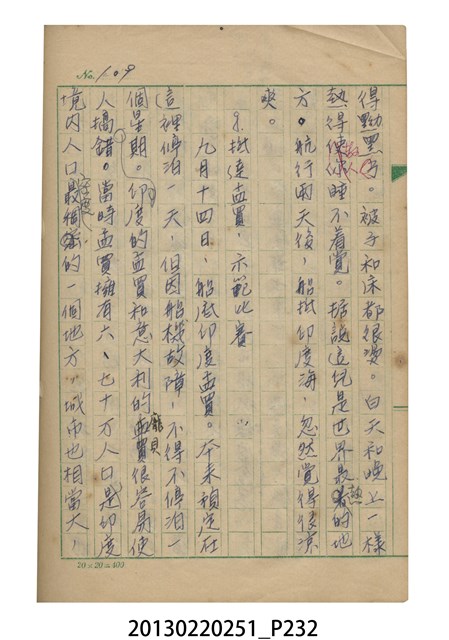 No. 109
得黝黑。被子和床都很燙。白天和晚上一樣
熱得使人睡不着覺。據說這兒是世界最熱的地
方。航行兩天後，船抵印度海，忽然覺得很涼
爽。
9.抵達孟買，示範比賽
九月十四日，船底印度孟買。本來預定在
這裡停泊一天，但因船機故障，不得不停泊一
個星期。印度的孟買和意大利的龐貝很容易使
人搞錯。當時孟買擁有六、七十万人口是印度
境內人口最密度的一個地方，城市也相當大，
20×20=400
20130220251_P232